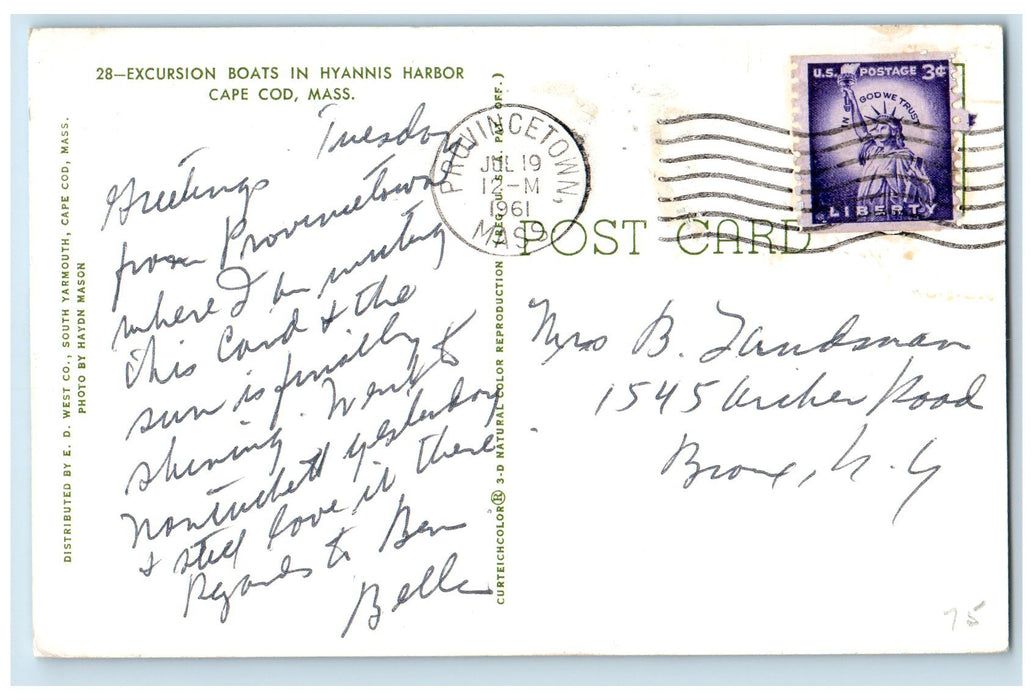 28—EXCURSION BOATS IN HYANNIS HARBOR
CAPE COD, MASS.
Tuesday
Greetings
from Provincetown
where I am writing
this Card & the
sun is finally
shining. Went to
Nantuckett yesterday
& still love it there.
Regards to Ben
Belle
DISTRIBUTED BY E. D. WEST CO., SOUTH YARMOUTH, CAPE COD, MASS.
PHOTO BY HAYDN MASON
CURTEICHCOLOR® 3-D NATURAL COLOR REPRODUCTION (REG. U.S.A. PAT. OFF.)
PROVINCETOWN,
JUL 19
12-M
1961
MASS
POST CARD
U.S. POSTAGE 3¢
IN GOD WE TRUST
LIBERTY
Mrs B. Landsman
1545 Archer Road
Bronx, N.Y
75